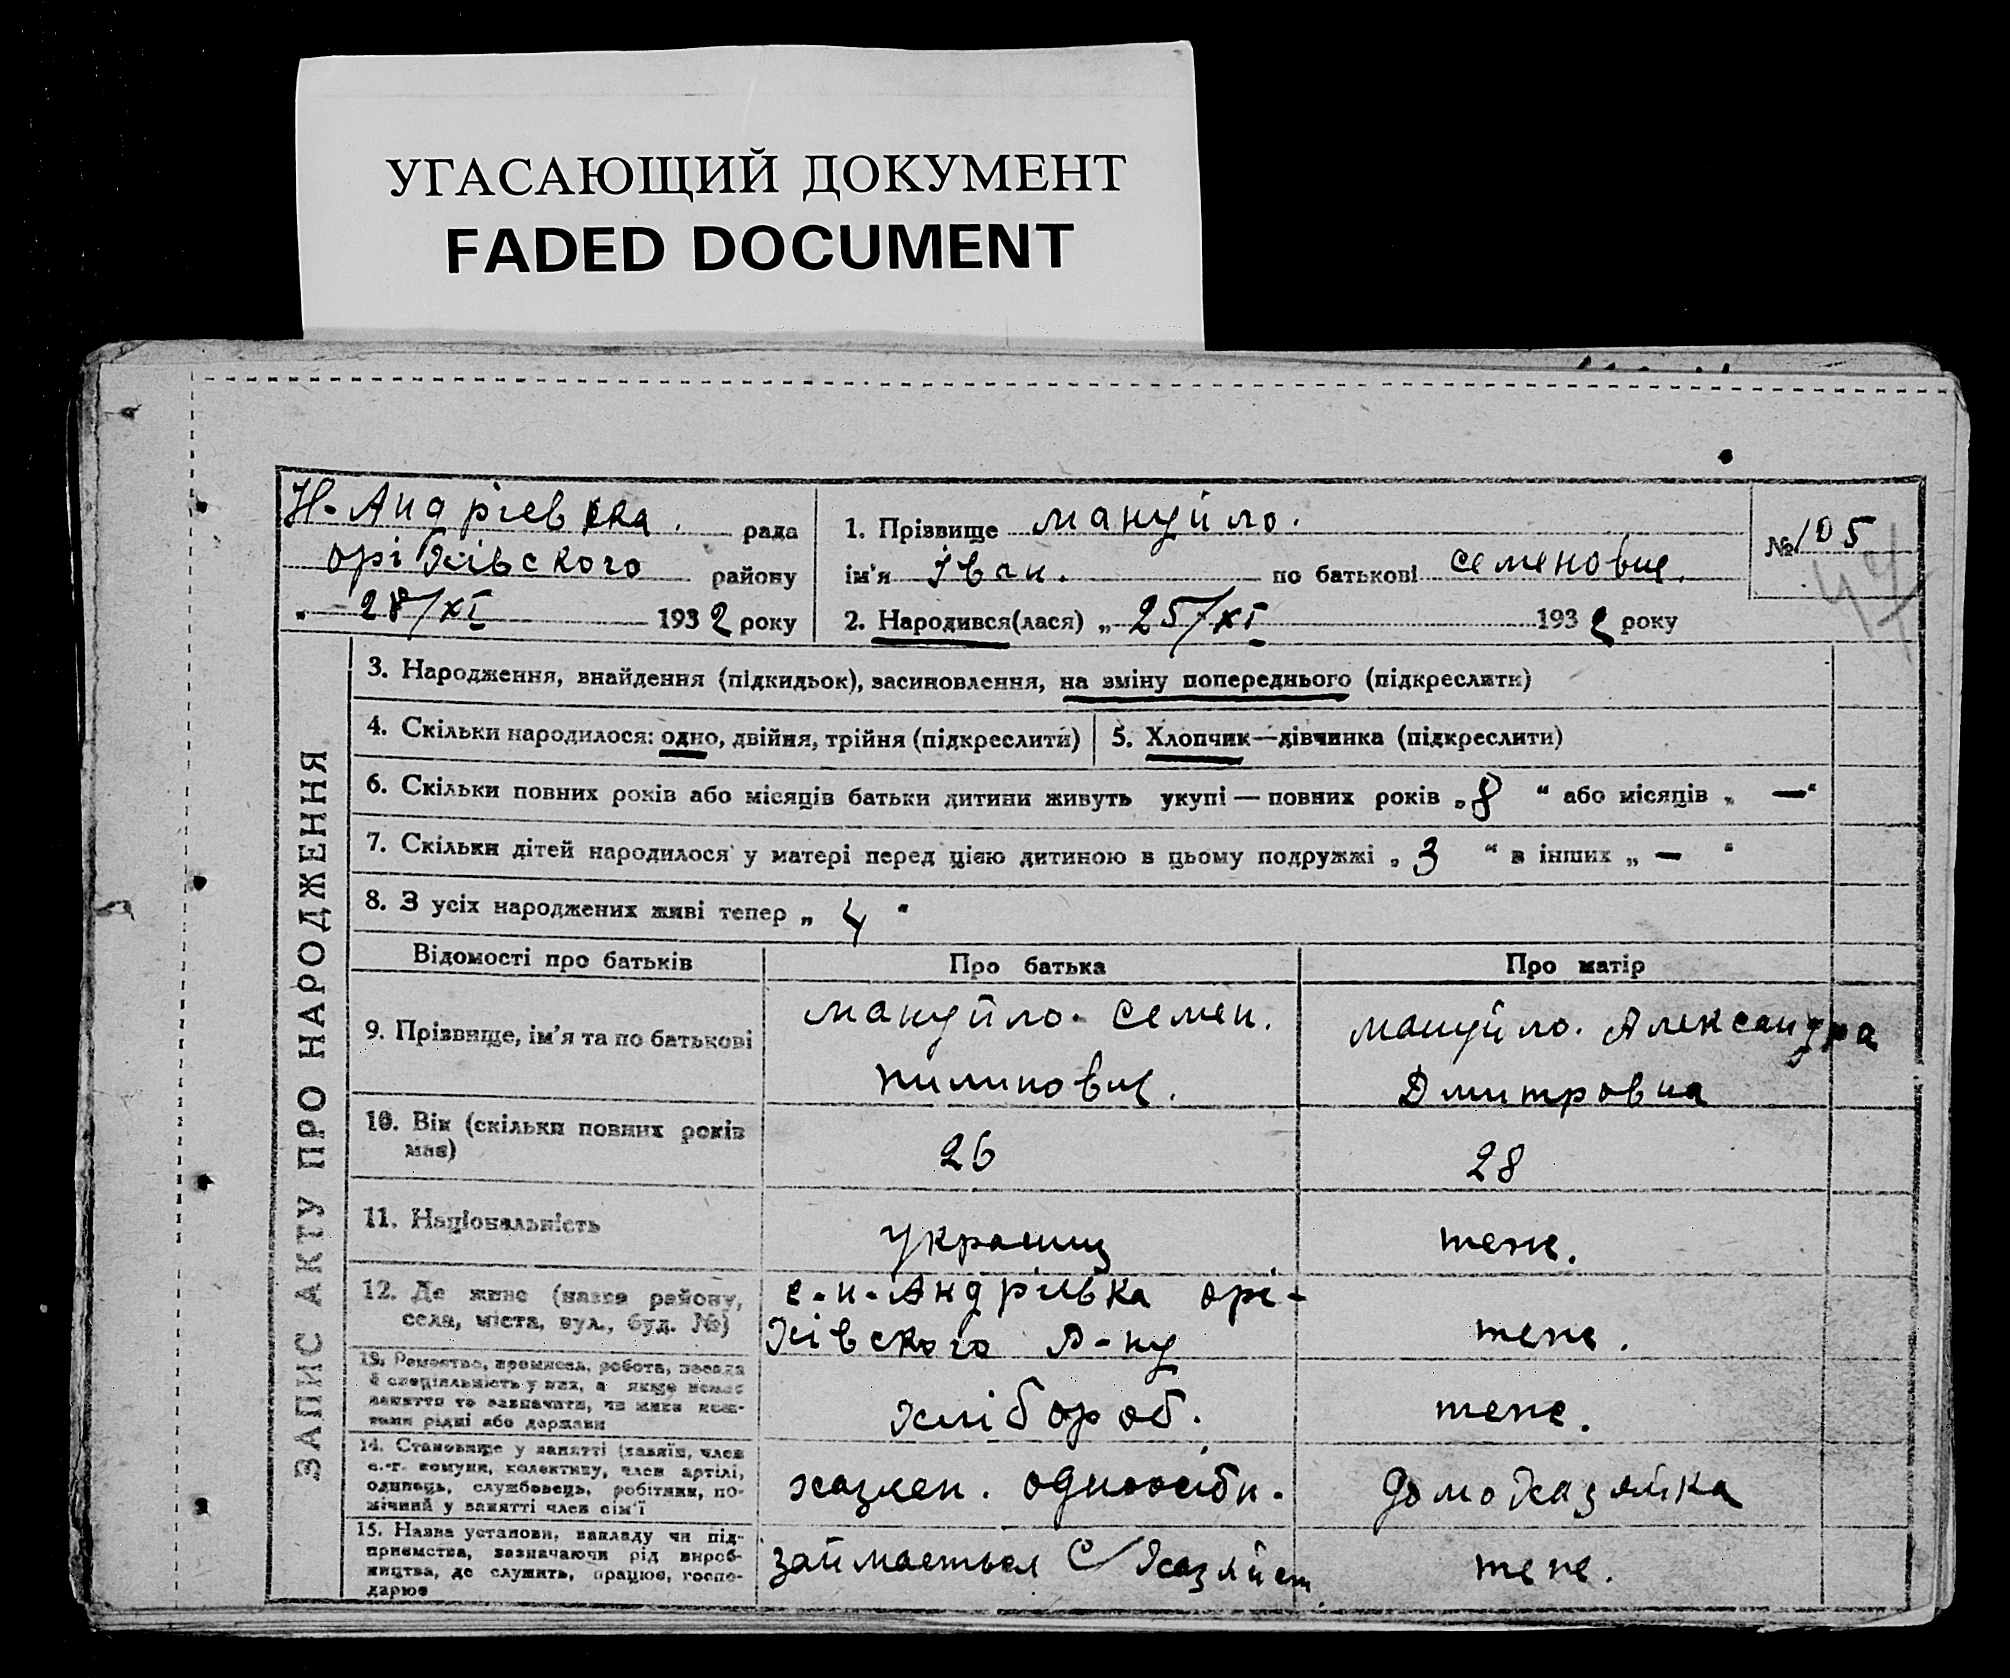 УГАСАЮЩИЙ ДОКУМЕНТ
FADED DOCUMENT
Н-Андрієвска. рада
орі Хівского району
28/XI 1932 року
1. Прізвище мануйло.
ім'я Іван. по батькові семеновиц.
2. Народився(лася) „ 25/XI 1932 року
№ 105
47
ЗАПИС АКТУ ПРО НАРОДЖЕННЯ
3. Народження, знайдення (підкидьок), засиновлення, на зміну попереднього (підкреслити)
4. Скільки народилося: одно, двійня, трійня (підкреслити)
5. Хлопчик—дівчинка (підкреслити)
6. Скільки повних років або місяців батьки дитини живуть укупі — повних років „ 8 “ або місяців „ — “
7. Скільки дітей народилося у матері перед цією дитиною в цьому подружжі „ 3 “ в інших „ — “
8. З усіх народжених живі тепер „ 4 “
Відомості про батьків
Про батька
Про матір
9. Прізвище, ім'я та по батькові
мануйло. семен.
пилиповиц.
мануйло. Александра
Дмитровна
10. Вік (скільки повних років
має)
26
28
11. Національність
украинц
теже.
12. Де живе (назва району,
села, міста, вул., буд. №)
с.-н.-Андрієвка орі-
Хівского Р-ну
теже.
13. Ремество, промисел, робота, посада
й спеціяльність у них, а якщо немає
заняття то зазначити, чи живе кош-
тами рідні або держави
хлібороб.
теже.
14. Становище у занятті (хазяїн, член
с.-г. комуни, колективу, член артілі,
одинець, службовець, робітник, по-
мічний у занятті член сім'ї
хазяен. одноосібн.
домохазяйка
15. Назва установи, закладу чи під-
приємства, зазначаючи рід вироб-
ництва, де служить, працює, госпо-
дарює
займається С/Хазяйст
теже.